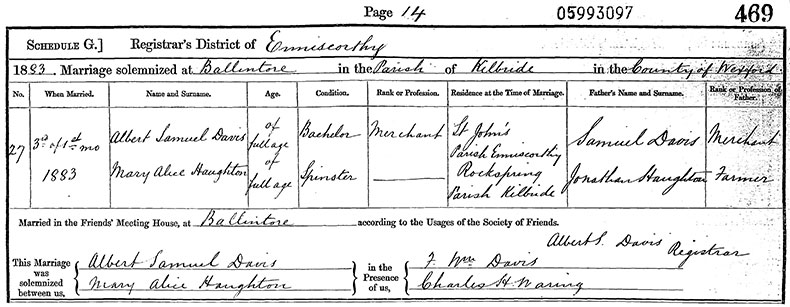 Page 14 05993097 469
SCHEDULE G.] Registrar's District of Enniscorthy
1883. Marriage solemnized at Ballintore in the Parish of Kilbride in the County of Wexford
No. When Married. Name and Surname. Age. Condition. Rank or Profession. Residence at the Time of Marriage. Father's Name and Surname. Rank or Profession of Father.
27 3rd of 1st mo 1883 Albert Samuel Davis of full age Bachelor Merchant St John's Parish Enniscorthy Samuel Davis Merchant
Mary Alice Haughton of full age Spinster Rockspring Parish Kilbride Jonathan Haughton Farmer
Married in the Friends' Meeting House, at Ballintore according to the Usages of the Society of Friends.
Albert S. Davis Registrar
This Marriage was solemnized between us, Albert Samuel Davis in the Presence of us, F. Wm Davis
Mary Alice Haughton Charles H Waring